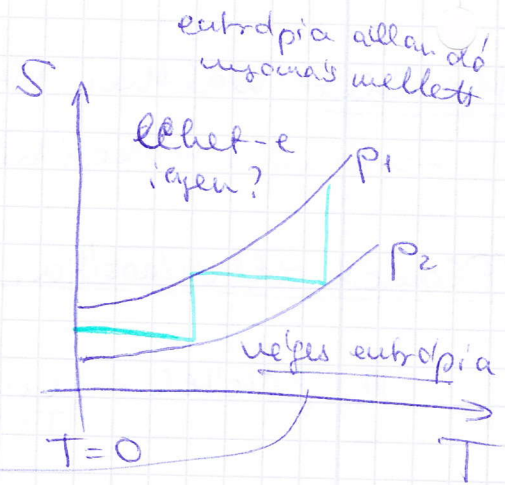 entrópia állandó
nyomás mellett
S
lehet-e
ilyen?
p1
p2
véges entrópia
T=0
T